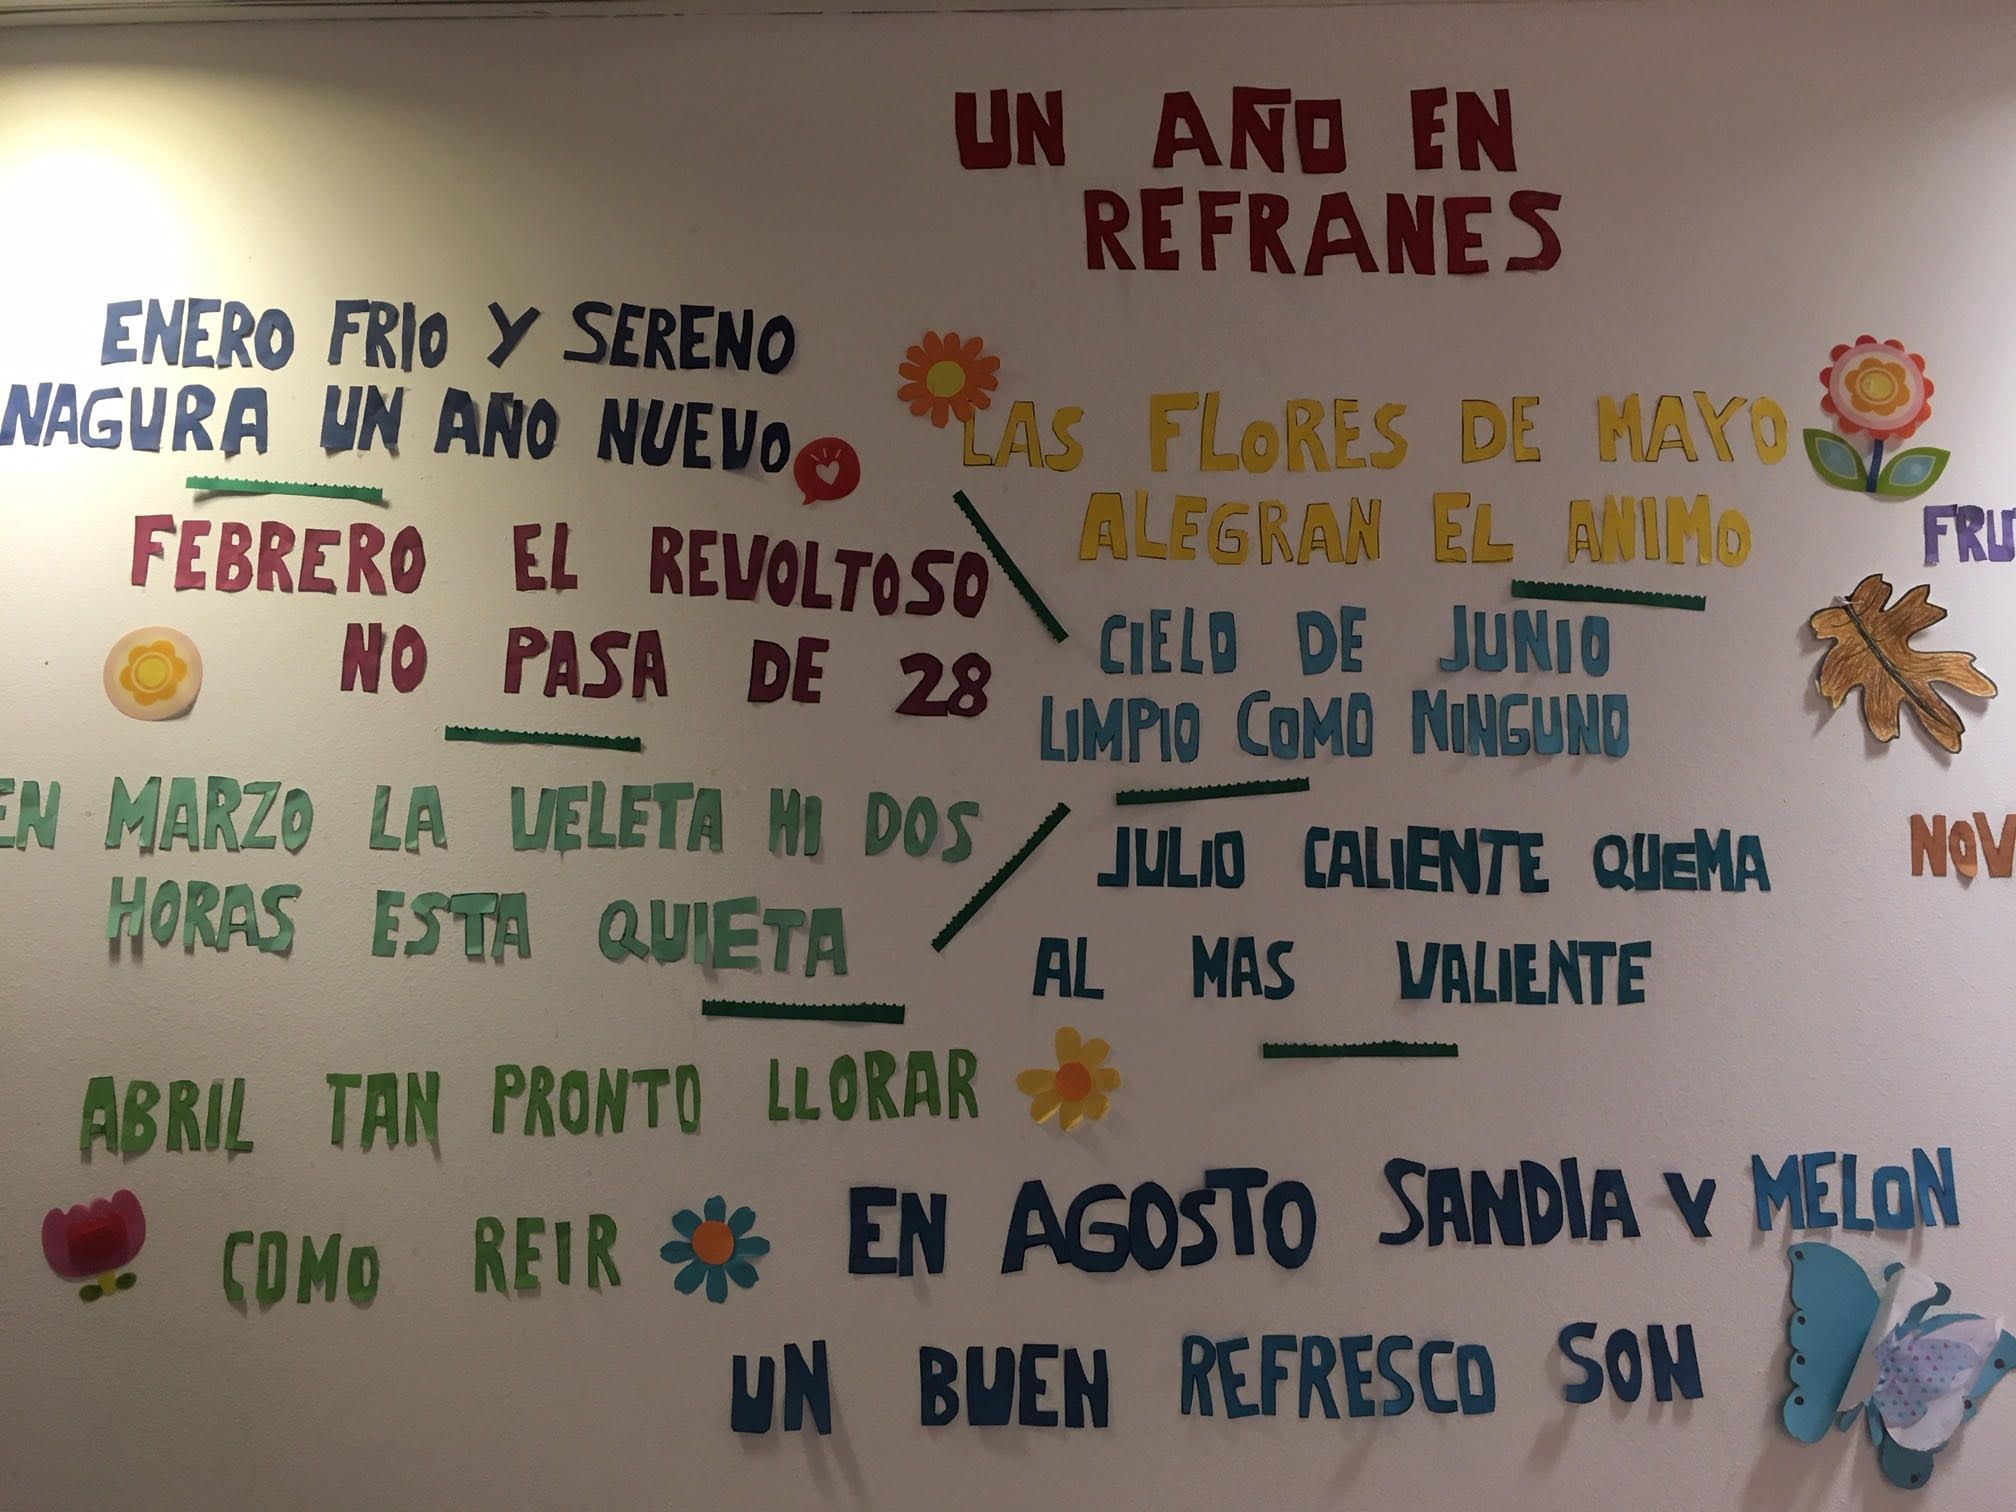 UN AÑO EN
REFRANES
ENERO FRIO Y SERENO
NAGURA UN AÑO NUEVO
FEBRERO EL REVOLTOSO
NO PASA DE 28
EN MARZO LA VELETA NI DOS
HORAS ESTA QUIETA
ABRIL TAN PRONTO LLORAR
COMO REIR
LAS FLORES DE MAYO
ALEGRAN EL ANIMO
CIELO DE JUNIO
LIMPIO COMO NINGUNO
JULIO CALIENTE QUEMA
AL MAS VALIENTE
EN AGOSTO SANDIA Y MELON
UN BUEN REFRESCO SON
FRU
NOV